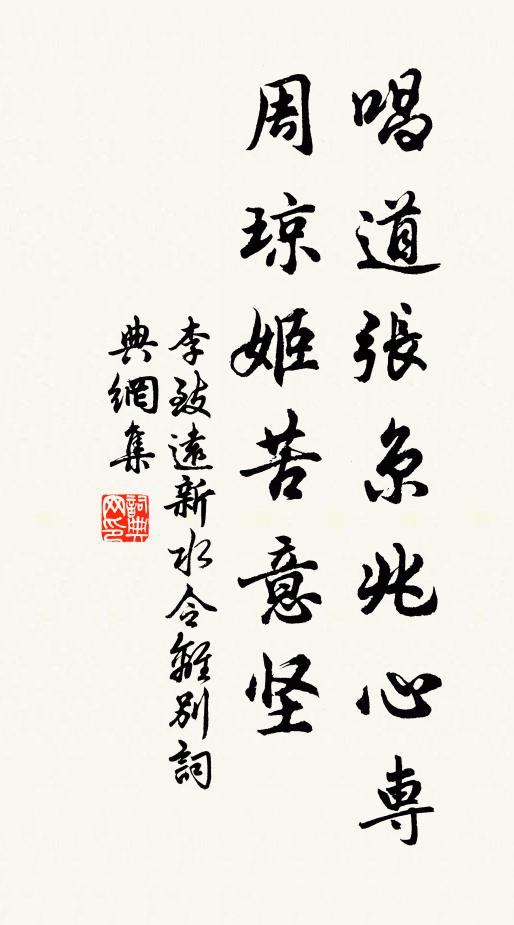 唱道張京兆心専
周琼姬苦意坚
李致遠新水令離別詞
典網集
詞典
网印